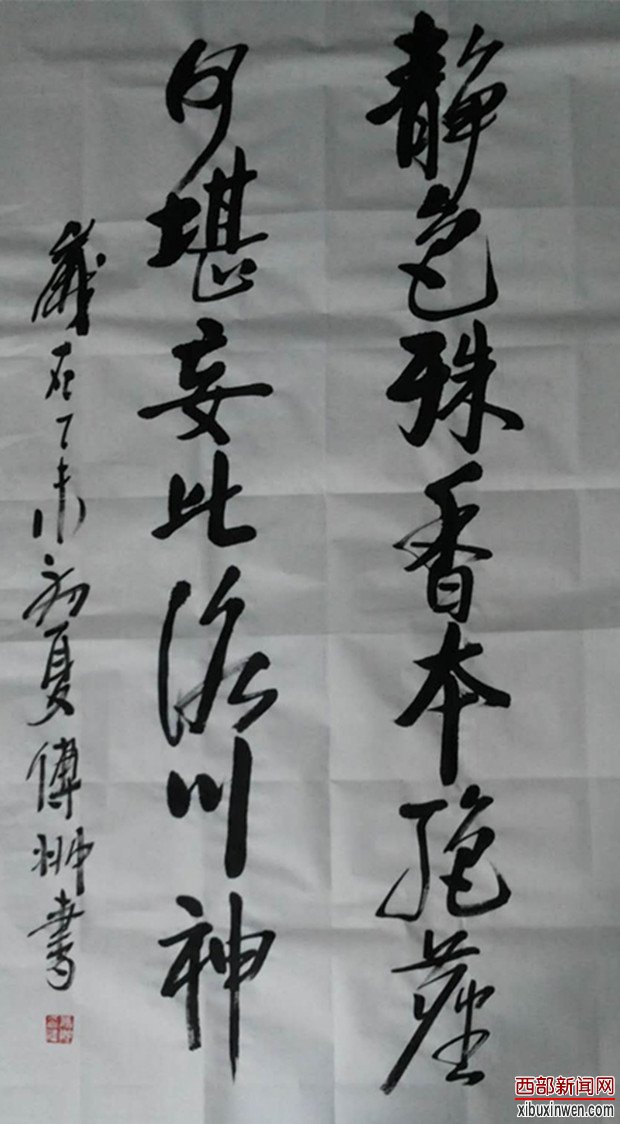 静色殊香本绝尘
何堪妄比洛川神
岁在丁未初夏傅帅书
西部新闻网
xibuxinwen.com